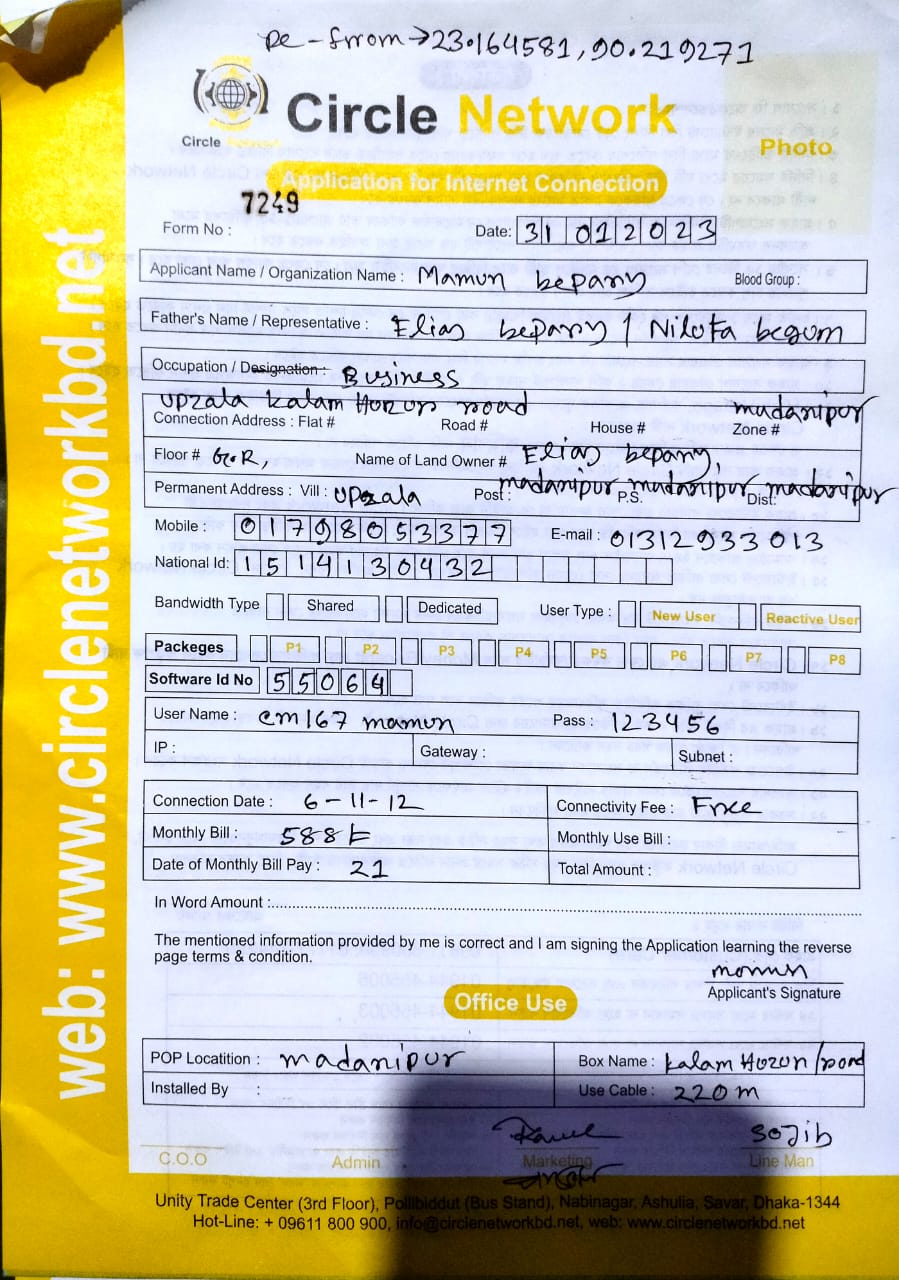 Re-from→23.164581, 90.219271
Circle Network
Circle
Photo
Application for Internet Connection
7249
Form No : Date: 31 01 2023
Applicant Name / Organization Name : Mamun bepary Blood Group :
Father's Name / Representative : Elias bepary / Niluta begum
Occupation / Designation : Business
upzala kalam Hozun road madanipur
Connection Address : Flat # Road # House # Zone #
Floor # G.R, Name of Land Owner # Elias bepary,
Permanent Address : Vill : upzala Post : madanipur P.S. madanipur Dist: madanipur
Mobile : 01798053377 E-mail : 01312933013
National Id: 1514130432
Bandwidth Type Shared Dedicated User Type : New User Reactive User
Packeges P1 P2 P3 P4 P5 P6 P7 P8
Software Id No 55064
User Name : cm167 mamun Pass : 123456
IP : Gateway : Subnet :
Connection Date : 6-11-12 Connectivity Fee : Free
Monthly Bill : 588 Monthly Use Bill :
Date of Monthly Bill Pay : 21 Total Amount :
In Word Amount :
The mentioned information provided by me is correct and I am signing the Application learning the reverse
page terms & condition.
momun
Applicant's Signature
Office Use
POP Locatition : madanipur Box Name : kalam Hozun/road
Installed By : Use Cable : 220m
sojib
C.O.O Admin Marketing Line Man
Unity Trade Center (3rd Floor), Pollibiddut (Bus Stand), Nabinagar, Ashulia, Savar, Dhaka-1344
Hot-Line: + 09611 800 900, info@circlenetworkbd.net, web: www.circlenetworkbd.net
web: www.circlenetworkbd.net